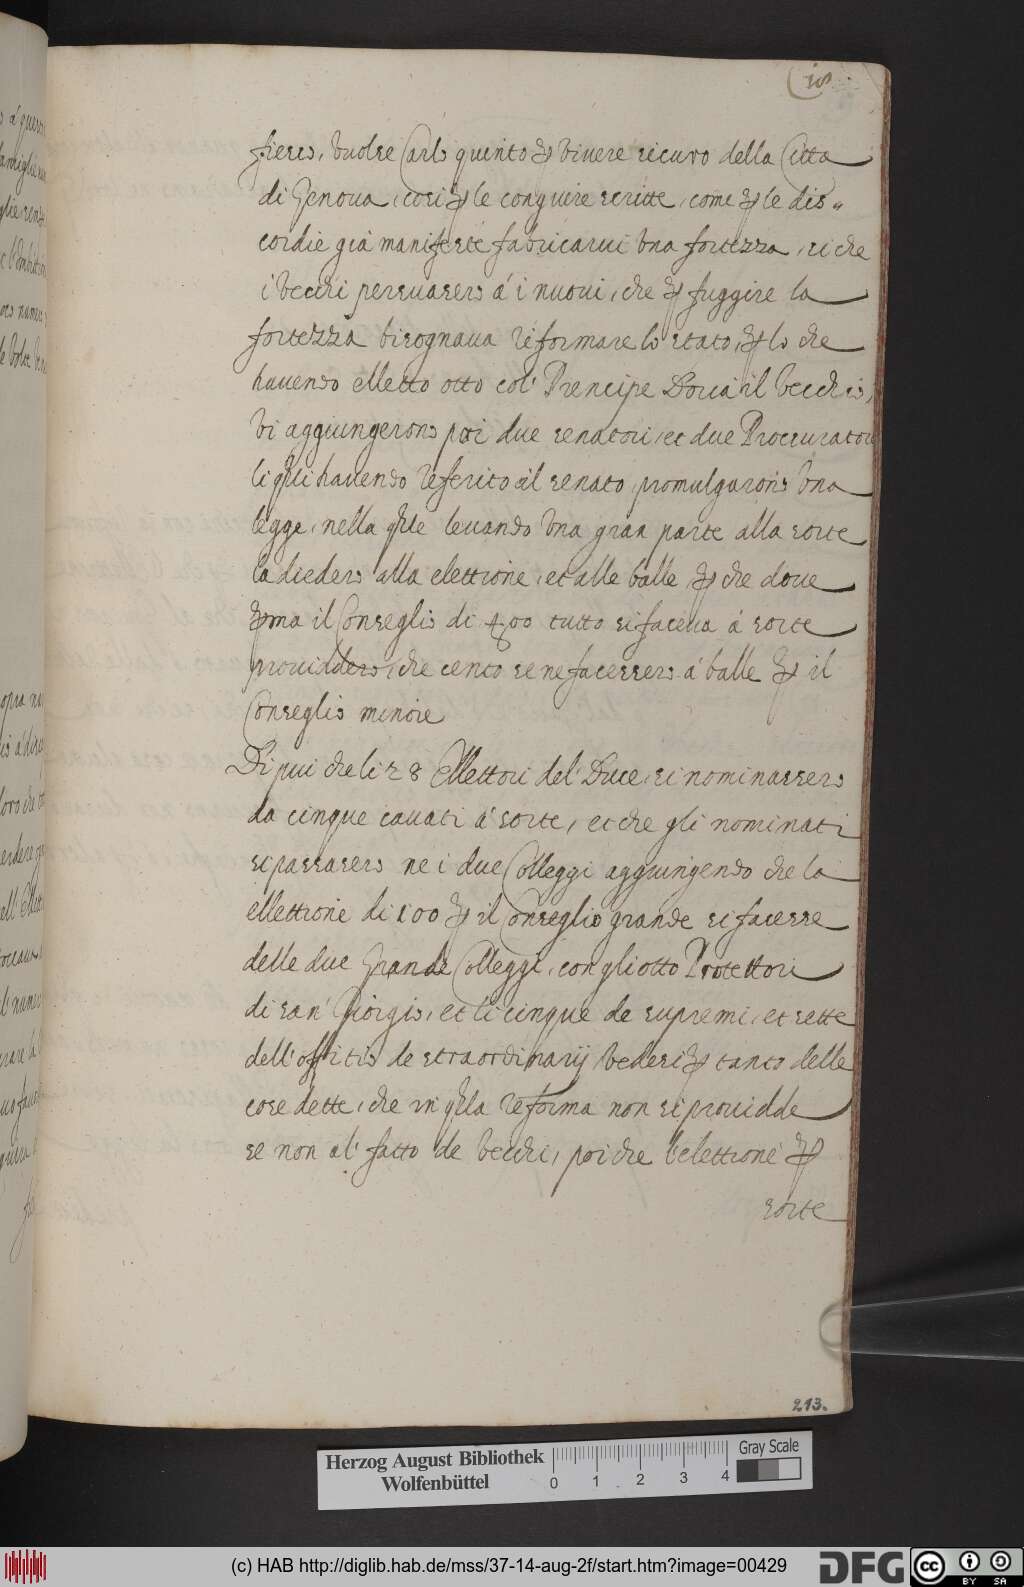 18
fieri, vuolse Carlo quinto ꝑ vivere sicuro della Citta
di Genova, cosi ꝑ le congiure scritte, come ꝑ le dis„
cordie già manifeste fabricarvi una fortezza, si che
i vecchi persuasero à i nuovi, che ꝑ fuggire la
fortezza bisognava reformare lo stato, ꝑ lo che
havendo elletto otto col' Prencipe Doria il vecchio,
vi aggiungerono poi due senatori, et due Proccuratori
li q̃li havendo referito al senato, promulgarono una
legge, nella q̃le levando una gran parte alla sorte
la diedero alla elettione, et alle balle ꝑ che dove
ꝑma il Conseglio di 400 tutto si faceva à sorte
providdero, che cento se ne facessero à balle ꝑ il
Conseglio minore
Di piu che li 28 Ellettori del' Duce, si nominassero
da cinque cavati à sorte, et che gli nominati
si passasero ne i due Colleggi aggiungendo che la
ellettione di 100 ꝑ il Conseglio grande si facesse
delle due Grande Colleggi, con gli otto Protettori
di san' Giorgio, et li cinque de supremi, et sette
dell'offitio de straordinarij vedesi ꝑ tanto delle
cose dette, che in q̃lla reforma non si providde
se non al' fatto de vecchi, poi che l'elettione ꝑ
sorte
213.
Herzog August Bibliothek
Wolfenbüttel
0 1 2 3 4
Gray Scale
(c) HAB http://diglib.hab.de/mss/37-14-aug-2f/start.htm?image=00429
DFG
cc BY SA